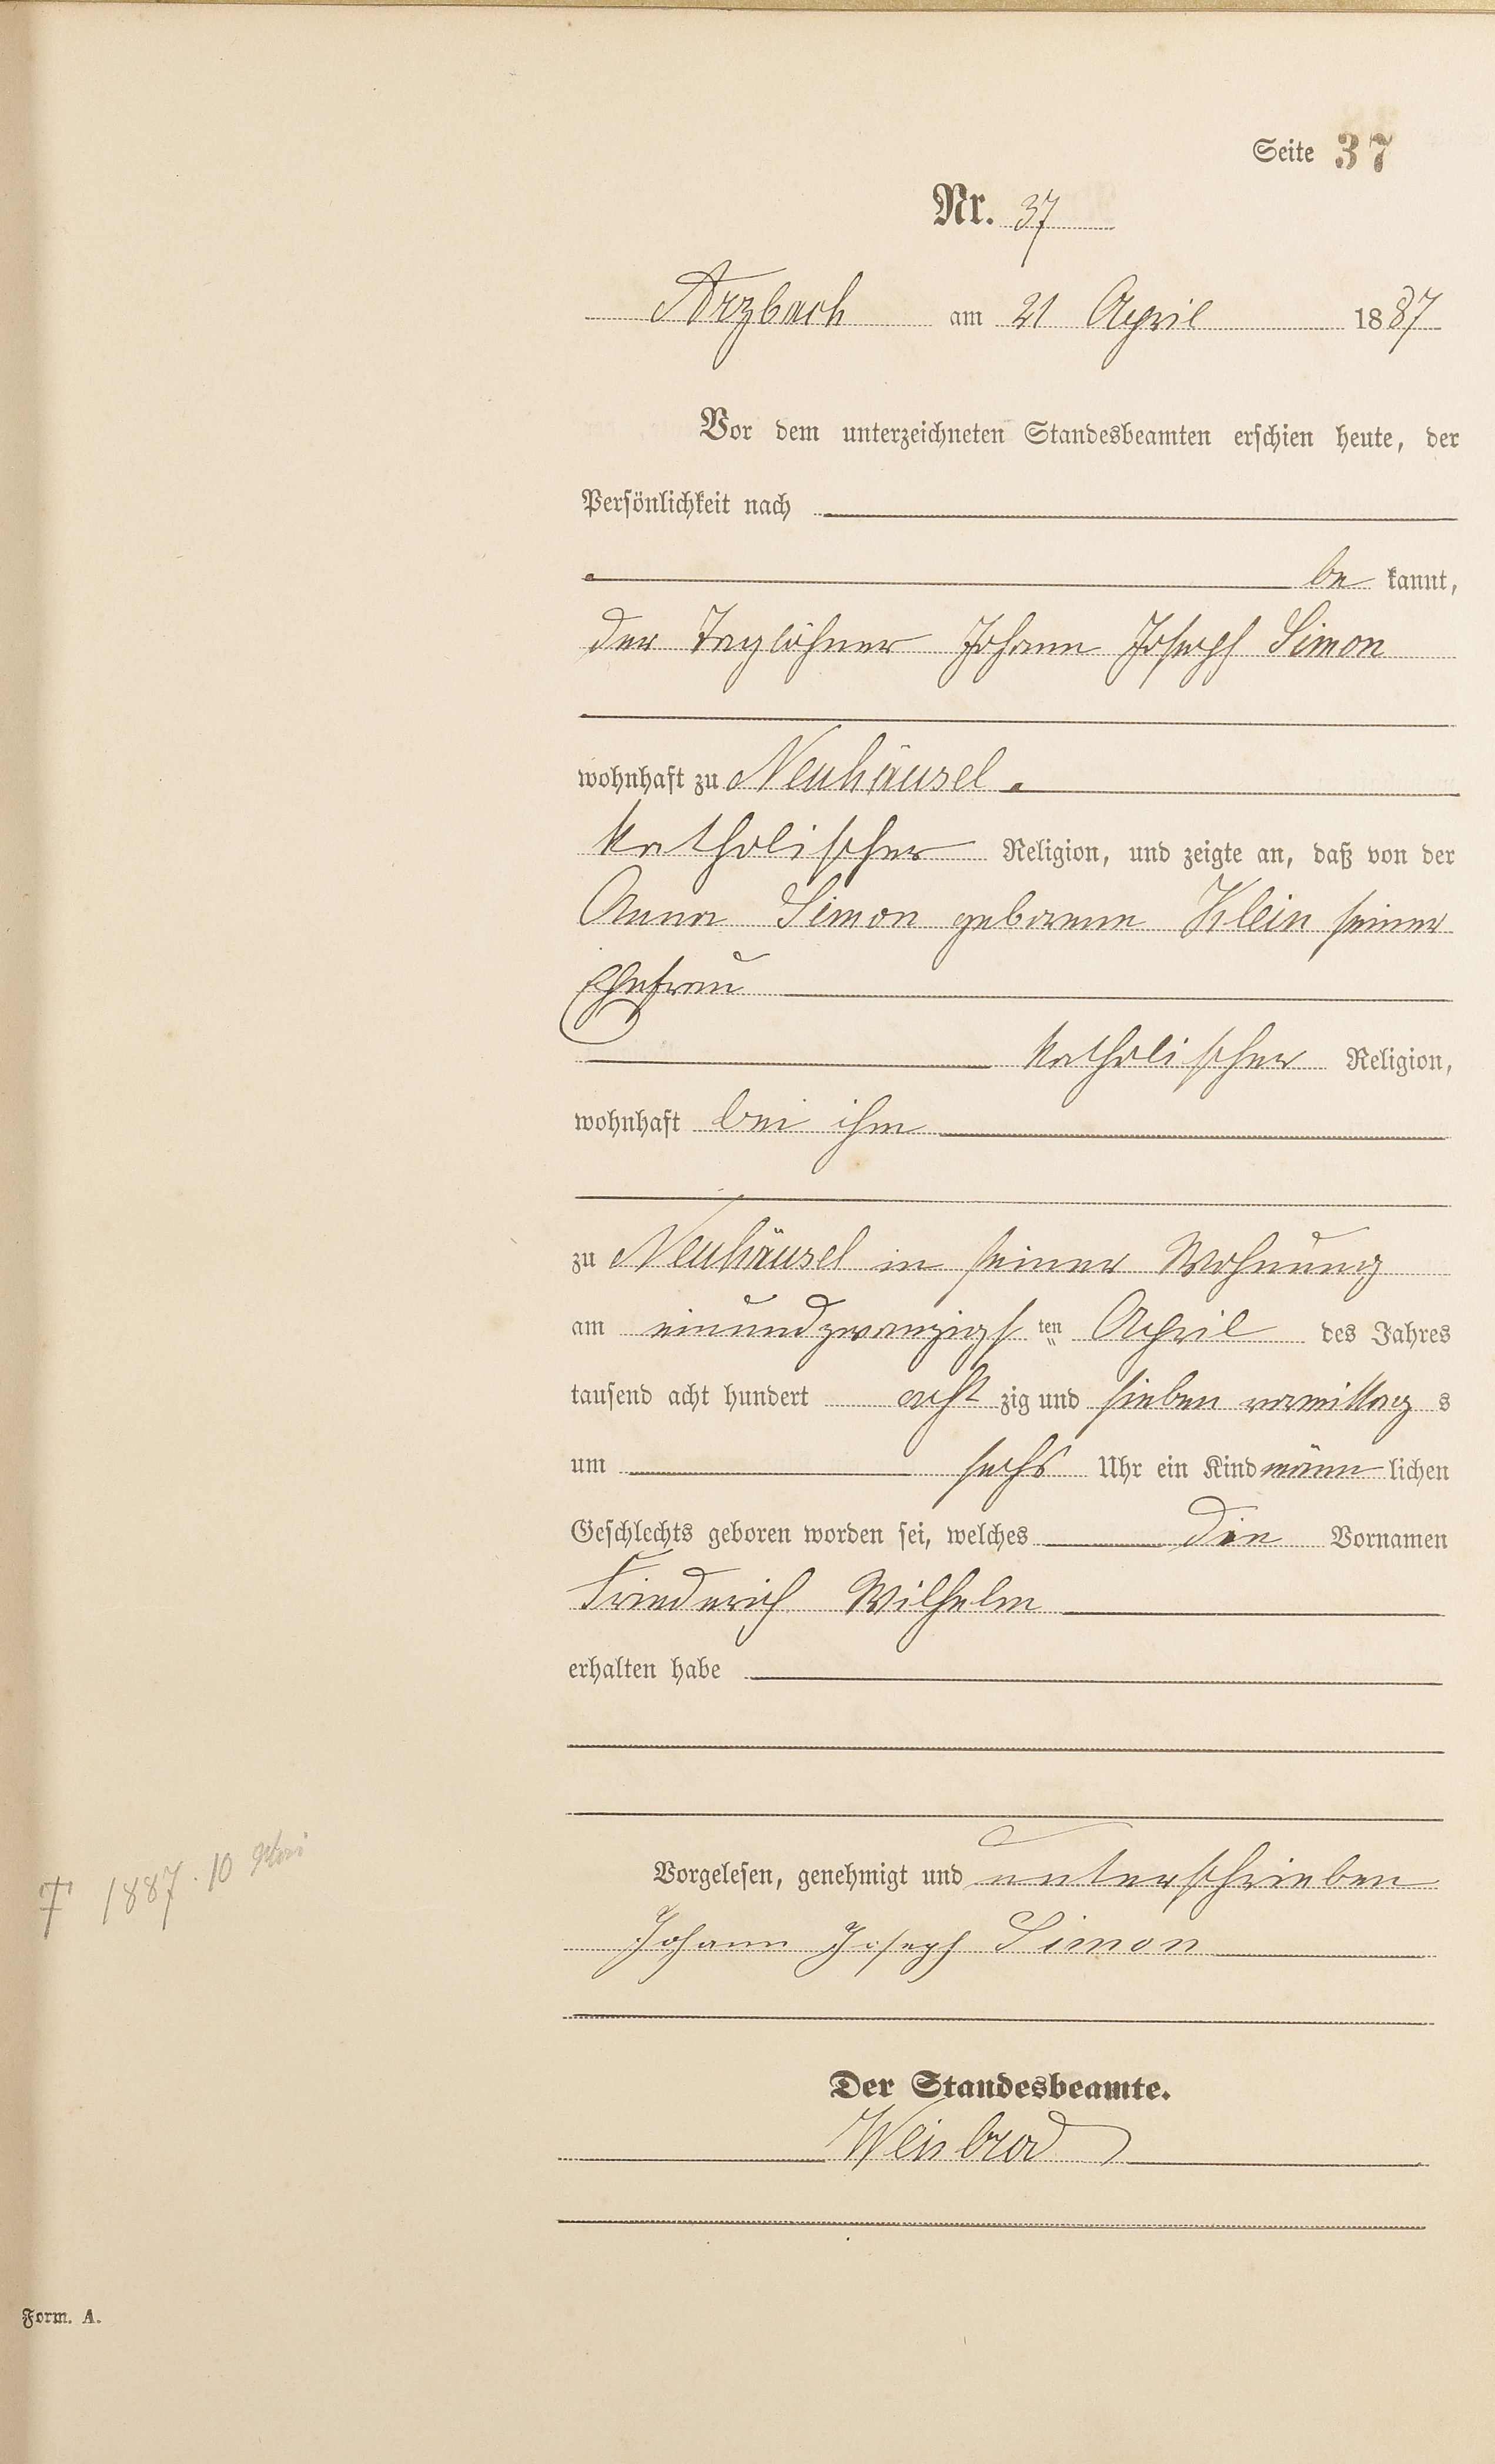 Seite 37
Nr. 37
Arzbach am 21 April 1887
Vor dem unterzeichneten Standesbeamten erschien heute, der
Persönlichkeit nach
be kannt,
der Taglöhner Johann Joseph Simon
wohnhaft zu Neuhäusel.
katholischer Religion, und zeigte an, daß von der
Anna Simon geborene Klein seiner
Ehefrau
katholischer Religion,
wohnhaft bei ihm
zu Neuhäusel in seiner Wohnung
am einundzwanzigsten April des Jahres
tausend acht hundert achtzig und sieben vormittags
um sechs Uhr ein Kind männlichen
Geschlechts geboren worden sei, welches die Vornamen
Friederich Wilhelm
erhalten habe
† 1887. 10 Mai
Vorgelesen, genehmigt und unterschrieben
Johann Joseph Simon
Der Standesbeamte.
Weisbrod
Form. A.